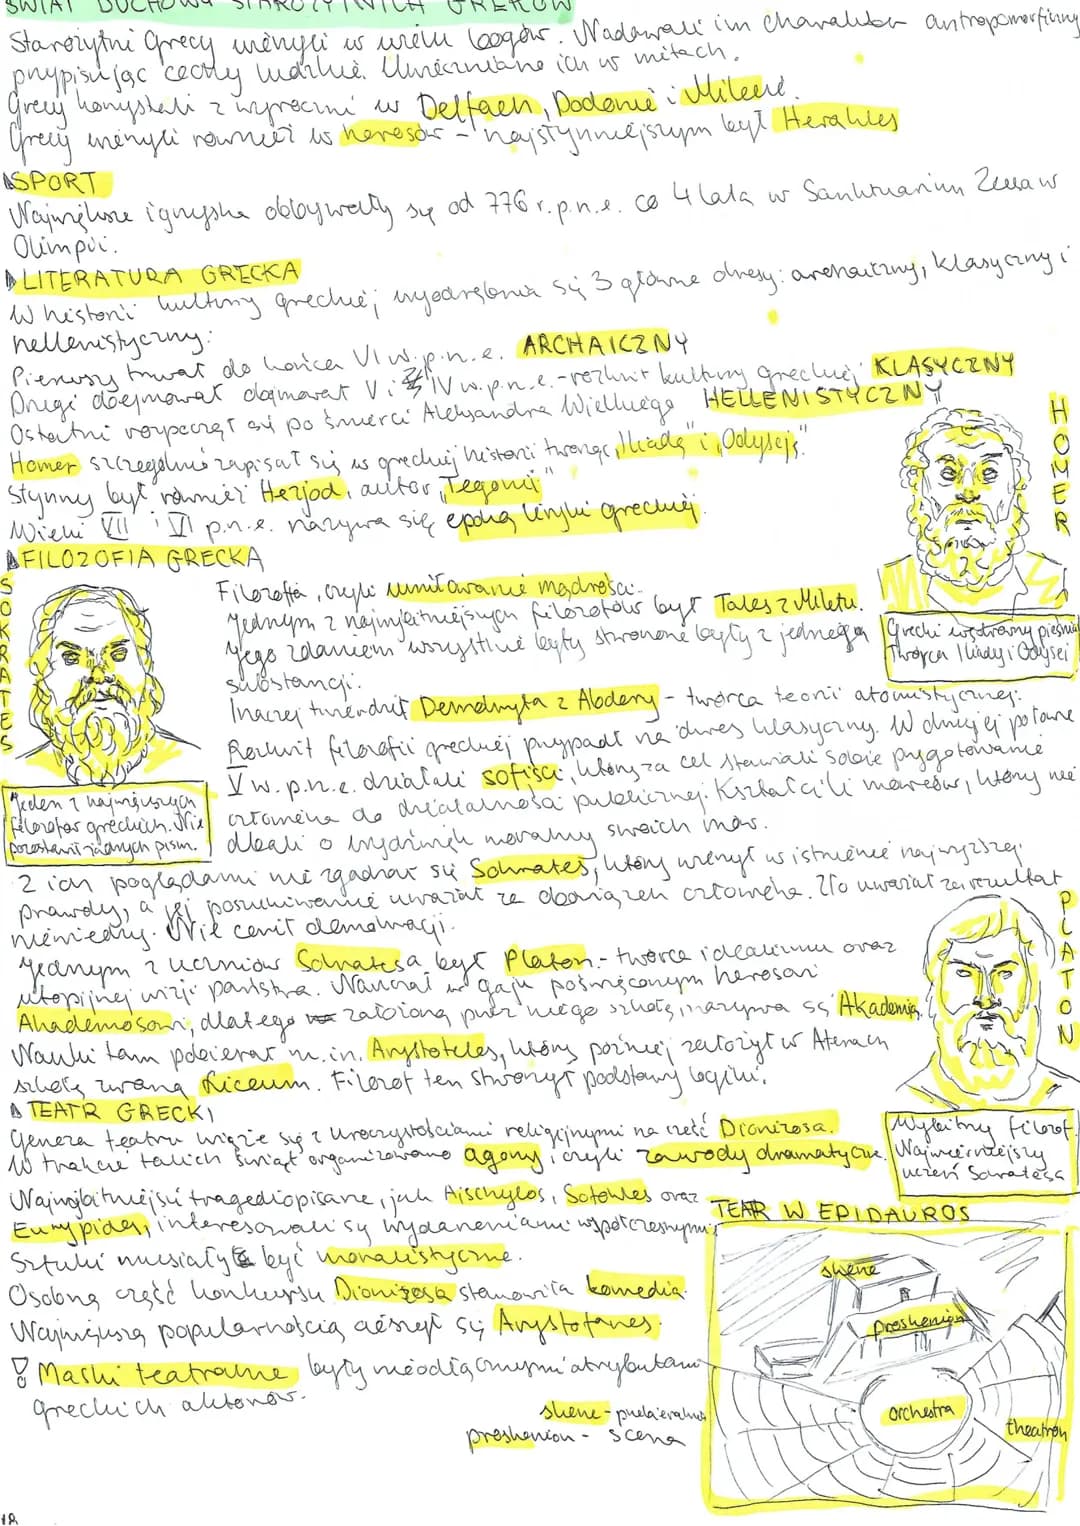 ŚWIAT DUCHOWY STAROŻYTNYCH GREKÓW
Starożytni Grecy wierzyli w wielu bogów. Nadawali im charakter antropomorficzny
przypisując cechy ludzkie. Uwieczniano ich w mitach.
Grecy korzystali z wyroczni w Delfach, Dodonie i Milecie.
Grecy wierzyli również w herosów - najsłynniejszym był Herakles
SPORT
Największe igrzyska odbywały się od 776 r.p.n.e. co 4 lata w Sanktuarium Zeusa w
Olimpii.
LITERATURA GRECKA
W historii kultury greckiej wyodrębnia się 3 główne okresy: archaiczny, klasyczny i
hellenistyczny:
Pierwszy trwał do końca VI w.p.n.e. ARCHAICZNY
Drugi obejmował V i IV w.p.n.e. - rozkwit kultury greckiej KLASYCZNY
Ostatni rozpoczął się po śmierci Aleksandra Wielkiego HELLENISTYCZNY
Homer szczególnie zapisał się w greckiej historii tworząc „Iliadę" i „Odyseję".
Słynny był również Hezjod, autor „Tegonii"
Wieki VII i VI p.n.e. nazywa się epoką liryki greckiej.
HOMER
Grecki wędrowny pieśniarz
Twórca Iliady i Odysei
FILOZOFIA GRECKA
SOKRATES
Jeden z największych
filozofów greckich. Nie
pozostawił żadnych pism.
Filozofia, czyli umiłowanie mądrości.
Jednym z najwybitniejszych filozofów był Tales z Miletu.
Jego zdaniem wszystkie byty stworzone były z jednego
substancji.
Inaczej twierdził Demokryta z Abdery - twórca teorii atomistycznej.
Rozkwit filozofii greckiej przypadł na okres klasyczny. W drugiej połowie
V w. p.n.e. działali sofiści, którzy za cel stawiali sobie przygotowanie
człowieka do działalności publicznej. Kształcili mówców, którzy nie
dbali o wydźwięk moralny swoich mów.
Z ich poglądami nie zgadzał się Sokrates, który wierzył w istnienie najwyższej
prawdy, a jej poszukiwanie uważał za obowiązek człowieka. Zło uważał za rezultat
niewiedzy. Nie cenił demokracji.
Jednym z uczniów Sokratesa był Platon - twórca idealizmu oraz
utopijnej wizji państwa. Nauczał w gaju poświęconym herosowi
Akademosowi, dlatego założoną przez niego szkołę, nazywa się Akademią.
Nauki tam pobierał m.in. Arystoteles, który później założył w Atenach
szkołę zwaną Liceum. Filozof ten stworzył podstawy logiki.
PLATON
Wybitny filozof.
Najwierniejszy
uczeń Sokratesa
TEATR GRECKI
Geneza teatru wiąże się z uroczystościami religijnymi na cześć Dionizosa.
W trakcie takich świąt organizowano agony, czyli zawody dramatyczne.
Najwybitniejsi tragediopisarze, jak Aischylos, Sofokles oraz
Eurypides, interesowali się wydarzeniami współczesnymi
Sztuki musiały być moralistyczne.
Osobną część konkursu Dionizosa stanowiła komedia.
Największą popularnością cieszył się Arystofanes.
Maski teatralne były nieodłącznymi atrybutami
greckich aktorów.
skene - przebieralnia
proskenion - scena
TEATR W EPIDAUROS
skene
proskenion
orchestra
theatron
18